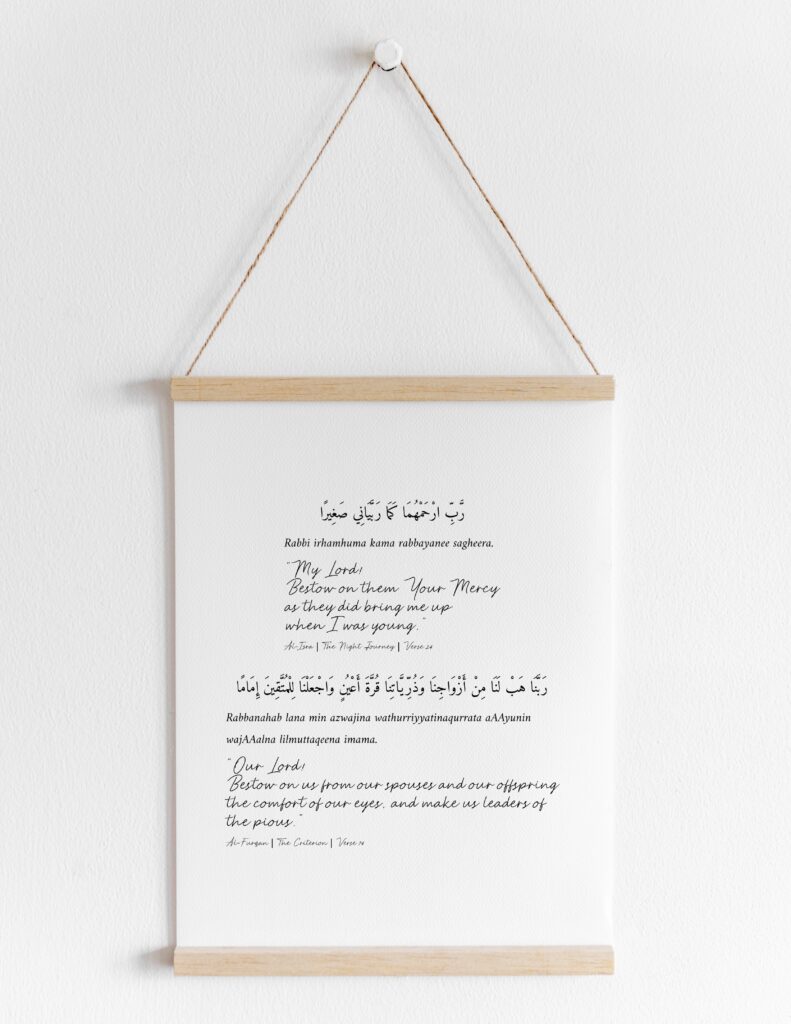 رَّبِّ ارْحَمْهُمَا كَمَا رَبَّيَانِي صَغِيرًا
Rabbi irhamhuma kama rabbayanee sagheera.
"My Lord!
Bestow on them Your Mercy
as they did bring me up
when I was young."
Al-Isra | The Night Journey | Verse 24
رَبَّنَا هَبْ لَنَا مِنْ أَزْوَاجِنَا وَذُرِّيَّاتِنَا قُرَّةَ أَعْيُنٍ وَاجْعَلْنَا لِلْمُتَّقِينَ إِمَامًا
Rabbanahab lana min azwajina wathurriyyatinaqurrata aAAyunin
wajAAalna lilmuttaqeena imama.
"Our Lord!
Bestow on us from our spouses and our offspring
the comfort of our eyes, and make us leaders of
the pious."
Al-Furqan | The Criterion | Verse 74